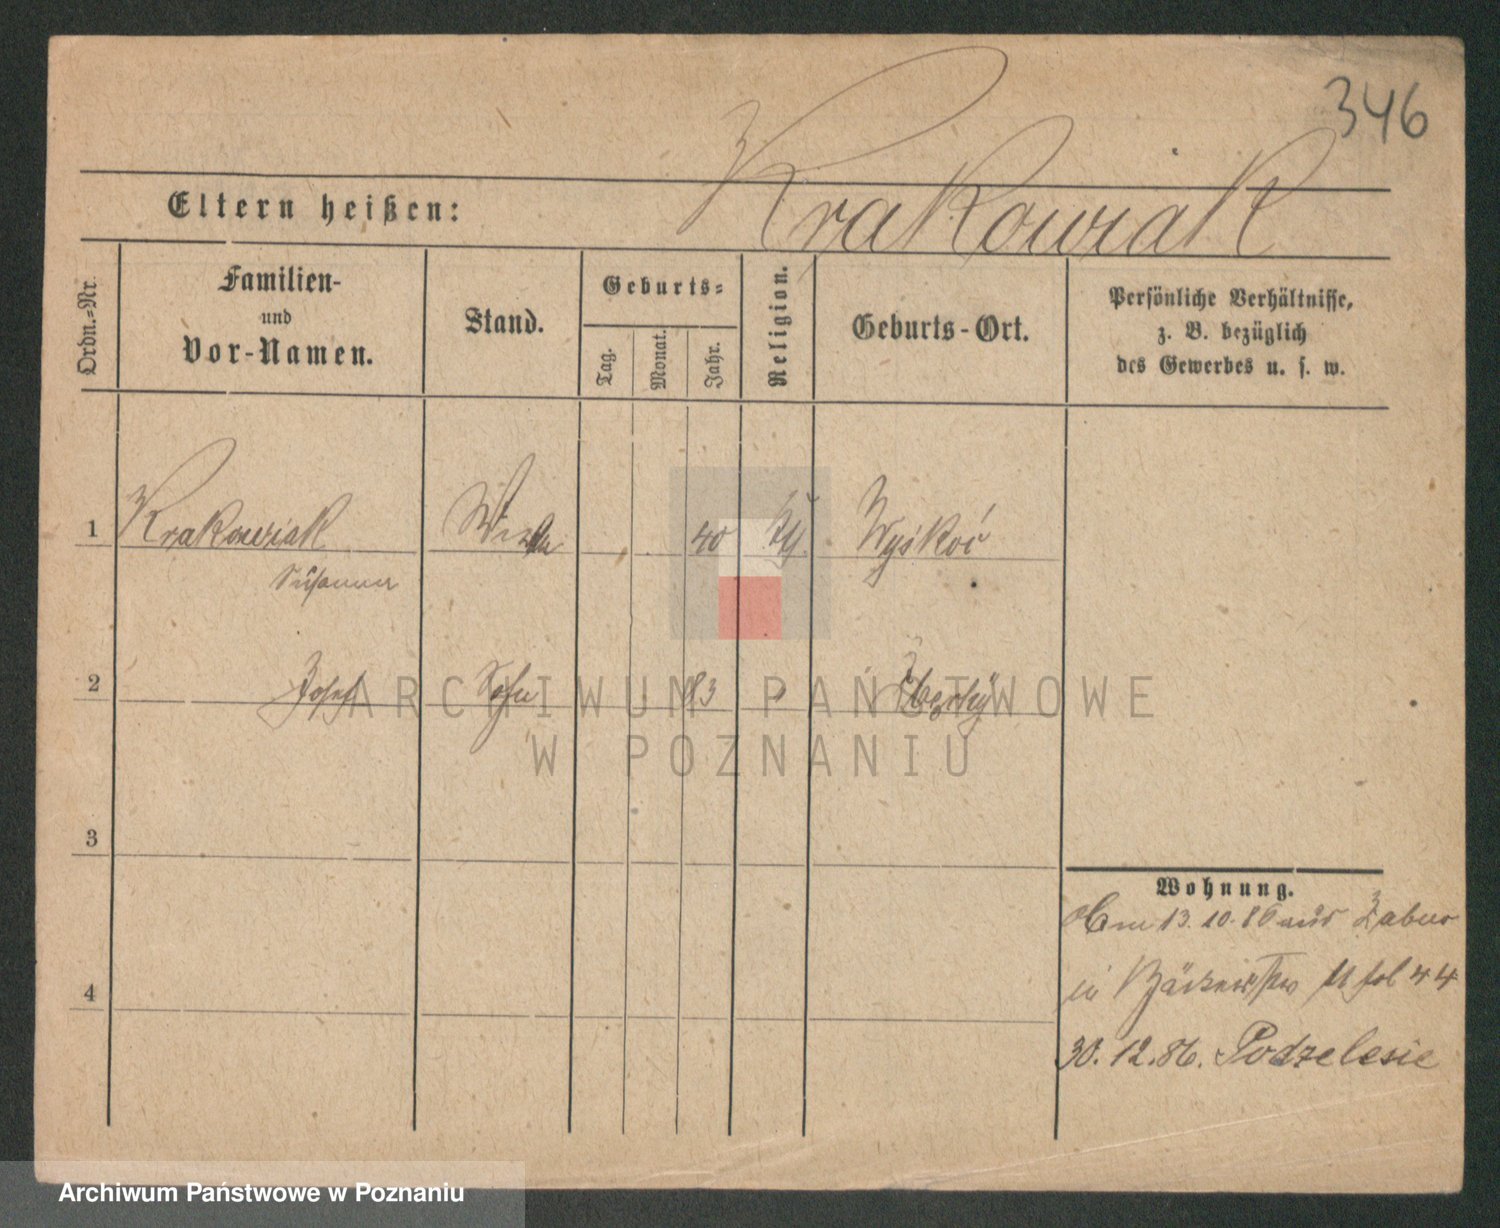 346
Krakowiak
Eltern heißen:
Ordn.-Nr.
Familien-
und
Vor-Namen.
Stand.
Geburts-
Tag.
Monat.
Jahr.
Religion.
Geburts-Ort.
Persönliche Verhältnisse,
z. B. bezüglich
des Gewerbes u. s. w.
1 Krakowiak 40
Susanna
2 Josef Sohn 83
3
4
Wohnung.
13. 10. 86 aus
in fol 44
30. 12. 86. Podzelesie
ARCHIWUM PAŃSTWOWE
W POZNANIU
Archiwum Państwowe w Poznaniu